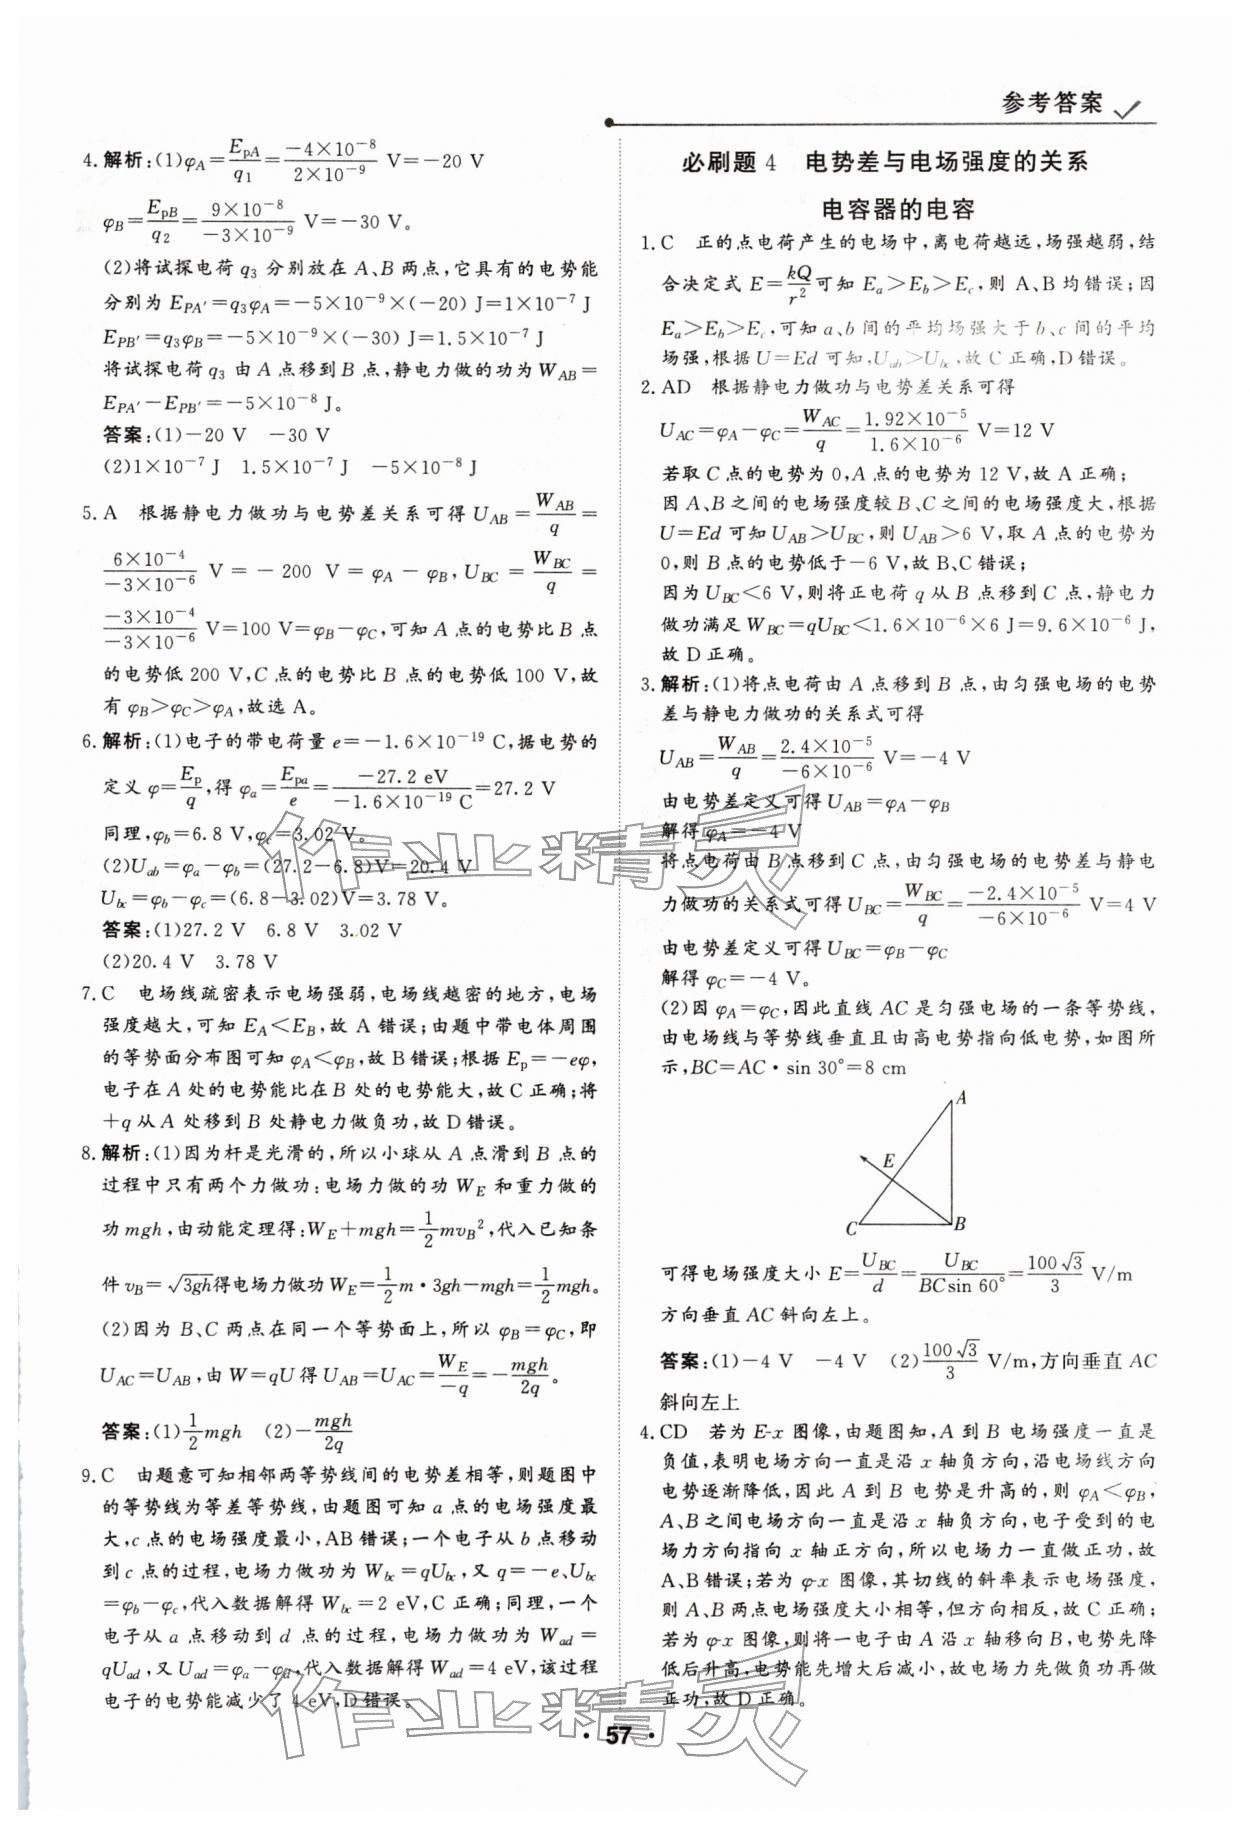 参考答案
4.解析:(1)φA=EpA/q1=−4×10⁻⁸/2×10⁻⁹ V=−20 V
φB=EpB/q2=9×10⁻⁸/−3×10⁻⁹ V=−30 V。
(2)将试探电荷 q3 分别放在 A、B 两点,它具有的电势能
分别为 EPA′=q3φA=−5×10⁻⁹×(−20) J=1×10⁻⁷ J
EPB′=q3φB=−5×10⁻⁹×(−30) J=1.5×10⁻⁷ J
将试探电荷 q3 由 A 点移到 B 点,静电力做的功为 WAB=
EPA′−EPB′=−5×10⁻⁸ J。
答案:(1)−20 V −30 V
(2)1×10⁻⁷ J 1.5×10⁻⁷ J −5×10⁻⁸ J
5.A 根据静电力做功与电势差关系可得 UAB=WAB/q=
6×10⁻⁴/−3×10⁻⁶ V=−200 V=φA−φB,UBC=WBC/q=
−3×10⁻⁴/−3×10⁻⁶ V=100 V=φB−φC,可知 A 点的电势比 B 点
的电势低 200 V,C 点的电势比 B 点的电势低 100 V,故
有 φB>φC>φA,故选 A。
6.解析:(1)电子的带电荷量 e=−1.6×10⁻¹⁹ C,据电势的
定义 φ=Ep/q,得 φa=Epa/e=−27.2 eV/−1.6×10⁻¹⁹ C=27.2 V
同理,φb=6.8 V,φc=3.02 V。
(2)Uab=φa−φb=(27.2−6.8)V=20.4 V
Ubc=φb−φc=(6.8−3.02)V=3.78 V。
答案:(1)27.2 V 6.8 V 3.02 V
(2)20.4 V 3.78 V
7.C 电场线疏密表示电场强弱,电场线越密的地方,电场
强度越大,可知 EA<EB,故 A 错误;由题中带电体周围
的等势面分布图可知 φA<φB,故 B 错误;根据 Ep=−eφ,
电子在 A 处的电势能比在 B 处的电势能大,故 C 正确;将
+q 从 A 处移到 B 处静电力做负功,故 D 错误。
8.解析:(1)因为杆是光滑的,所以小球从 A 点滑到 B 点的
过程中只有两个力做功:电场力做的功 WE 和重力做的
功 mgh,由动能定理得:WE+mgh=1/2mvB²,代入已知条
件 vB=√3gh得电场力做功 WE=1/2m·3gh−mgh=1/2mgh。
(2)因为 B、C 两点在同一个等势面上,所以 φB=φC,即
UAC=UAB,由 W=qU 得 UAB=UAC=WE/−q=−mgh/2q
答案:(1)1/2mgh (2)−mgh/2q
9.C 由题意可知相邻两等势线间的电势差相等,则题图中
的等势线为等差等势线,由题图可知 a 点的电场强度最
大,c 点的电场强度最小,AB 错误;一个电子从 b 点移动
到 c 点的过程,电场力做功为 Wbc=qUbc,又 q=−e、Ubc
=φb−φc,代入数据解得 Wbc=2 eV,C 正确;同理,一个
电子从 a 点移动到 d 点的过程,电场力做功为 Wad=
qUad,又 Uad=φa−φd,代入数据解得 Wad=4 eV,该过程
电子的电势能减少了 4 eV,D 错误。
必刷题 4 电势差与电场强度的关系
电容器的电容
1.C 正的点电荷产生的电场中,离电荷越远,场强越弱,结
合决定式 E=kQ/r²可知 Ea>Eb>Ec,则 A、B 均错误;因
Ea>Eb>Ec,可知 a、b 间的平均场强大于 b、c 间的平均
场强,根据 U=Ed 可知,Uab>Ubc,故 C 正确,D 错误。
2.AD 根据静电力做功与电势差关系可得
UAC=φA−φC=WAC/q=1.92×10⁻⁵/1.6×10⁻⁶ V=12 V
若取 C 点的电势为 0,A 点的电势为 12 V,故 A 正确;
因 A、B 之间的电场强度较 B、C 之间的电场强度大,根据
U=Ed 可知 UAB>UBC,则 UAB>6 V,取 A 点的电势为
0,则 B 点的电势低于−6 V,故 B、C 错误;
因为 UBC<6 V,则将正电荷 q 从 B 点移到 C 点,静电力
做功满足 WBC=qUBC<1.6×10⁻⁶×6 J=9.6×10⁻⁶ J,
故 D 正确。
3.解析:(1)将点电荷由 A 点移到 B 点,由匀强电场的电势
差与静电力做功的关系式可得
UAB=WAB/q=2.4×10⁻⁵/−6×10⁻⁶ V=−4 V
由电势差定义可得 UAB=φA−φB
解得 φA=−4 V
将点电荷由 B 点移到 C 点,由匀强电场的电势差与静电
力做功的关系式可得 UBC=WBC/q=−2.4×10⁻⁵/−6×10⁻⁶ V=4 V
由电势差定义可得 UBC=φB−φC
解得 φC=−4 V。
(2)因 φA=φC,因此直线 AC 是匀强电场的一条等势线,
由电场线与等势线垂直且由高电势指向低电势,如图所
示,BC=AC·sin 30°=8 cm
A
E
C
B
可得电场强度大小 E=UBC/d=UBC/BCsin 60°=100√3/3 V/m
方向垂直 AC 斜向左上。
答案:(1)−4 V −4 V (2)100√3/3 V/m,方向垂直 AC
斜向左上
4.CD 若为 E-x 图像,由题图知,A 到 B 电场强度一直是
负值,表明电场方向一直是沿 x 轴负方向,沿电场线方向
电势逐渐降低,因此 A 到 B 电势是升高的,则 φA<φB,
A、B 之间电场方向一直沿 x 轴负方向,电子受到的电
场力方向指向 x 轴正方向,所以电场力一直做正功,故
A、B 错误;若为 φ-x 图像,其切线的斜率表示电场强度,
则 A、B 两点电场强度大小相等,但方向相反,故 C 正确;
若为 φ-x 图像,则将一电子由 A 沿 x 轴移向 B,电势先降
低后升高,电势能先增大后减小,故电场力先做负功再做
正功,故 D 正确。
·57·
作业精灵
作业精灵